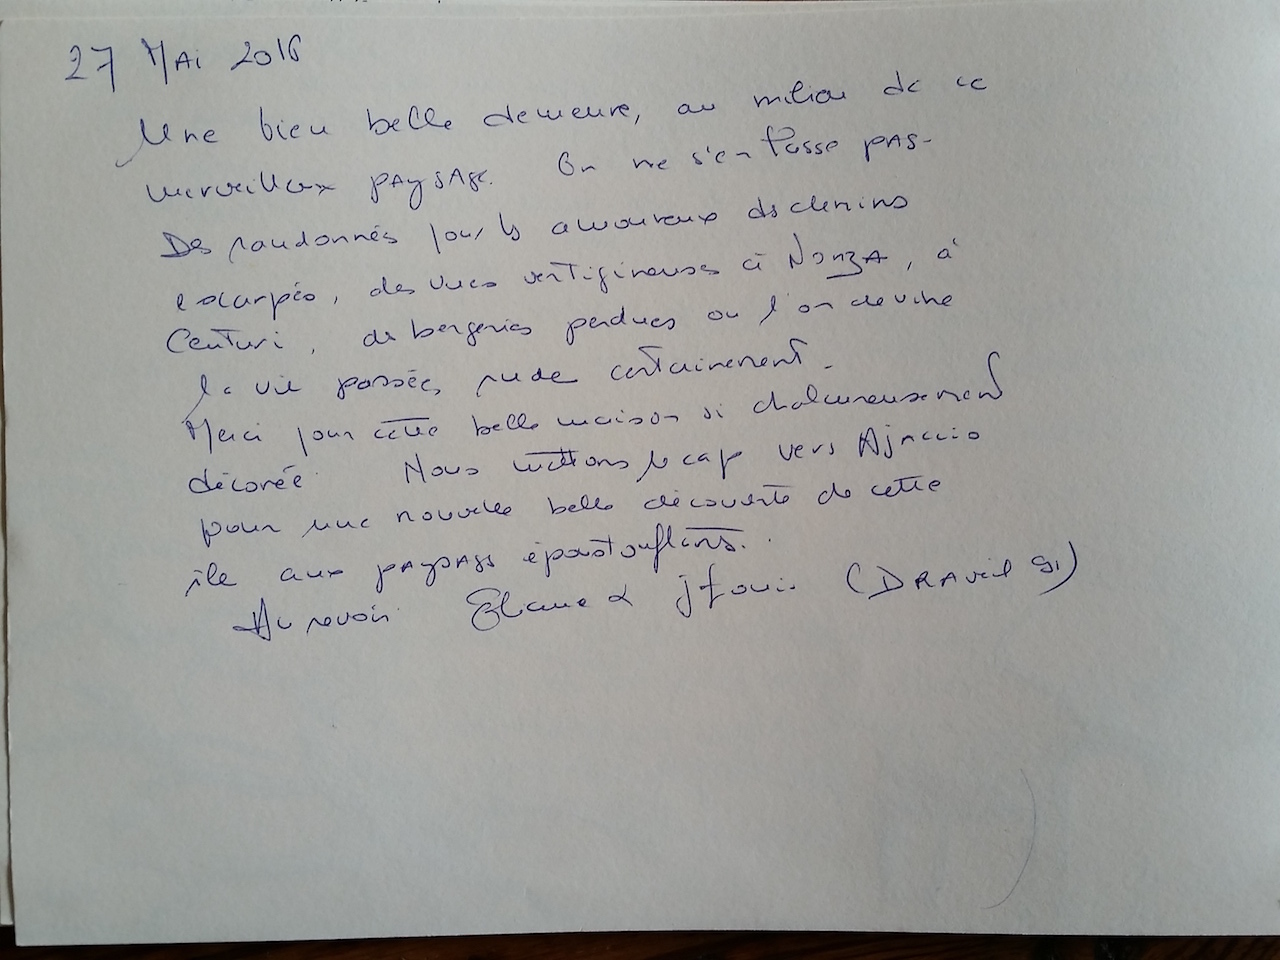 27 Mai 2016
Une bien belle demeure, au milieu de ce
merveilleux paysage. On ne s'en lasse pas.
Des randonnées pour les amoureux des chemins
escarpés, des vues vertigineuses à Nonza, à
Centuri, des bergeries perdues ou l'on devine
la vie passée, rude certainement.
Merci pour cette belle maison si chaleureusement
décorée. Nous mettons le cap vers Ajaccio
pour une nouvelle belle découverte de cette
île aux paysages époustouflants.
Au revoir (DRAveil 91)